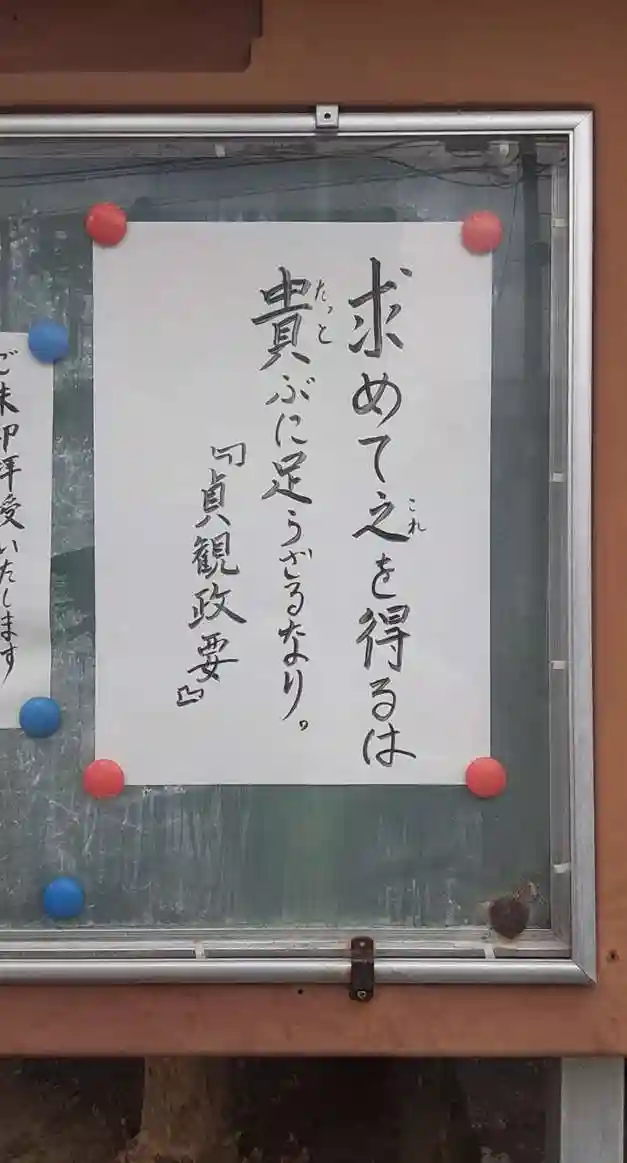 求めて之を得るは
これ
貴ぶに足らざるなり。
たっと
『貞観政要』
ご朱印拝受いたします